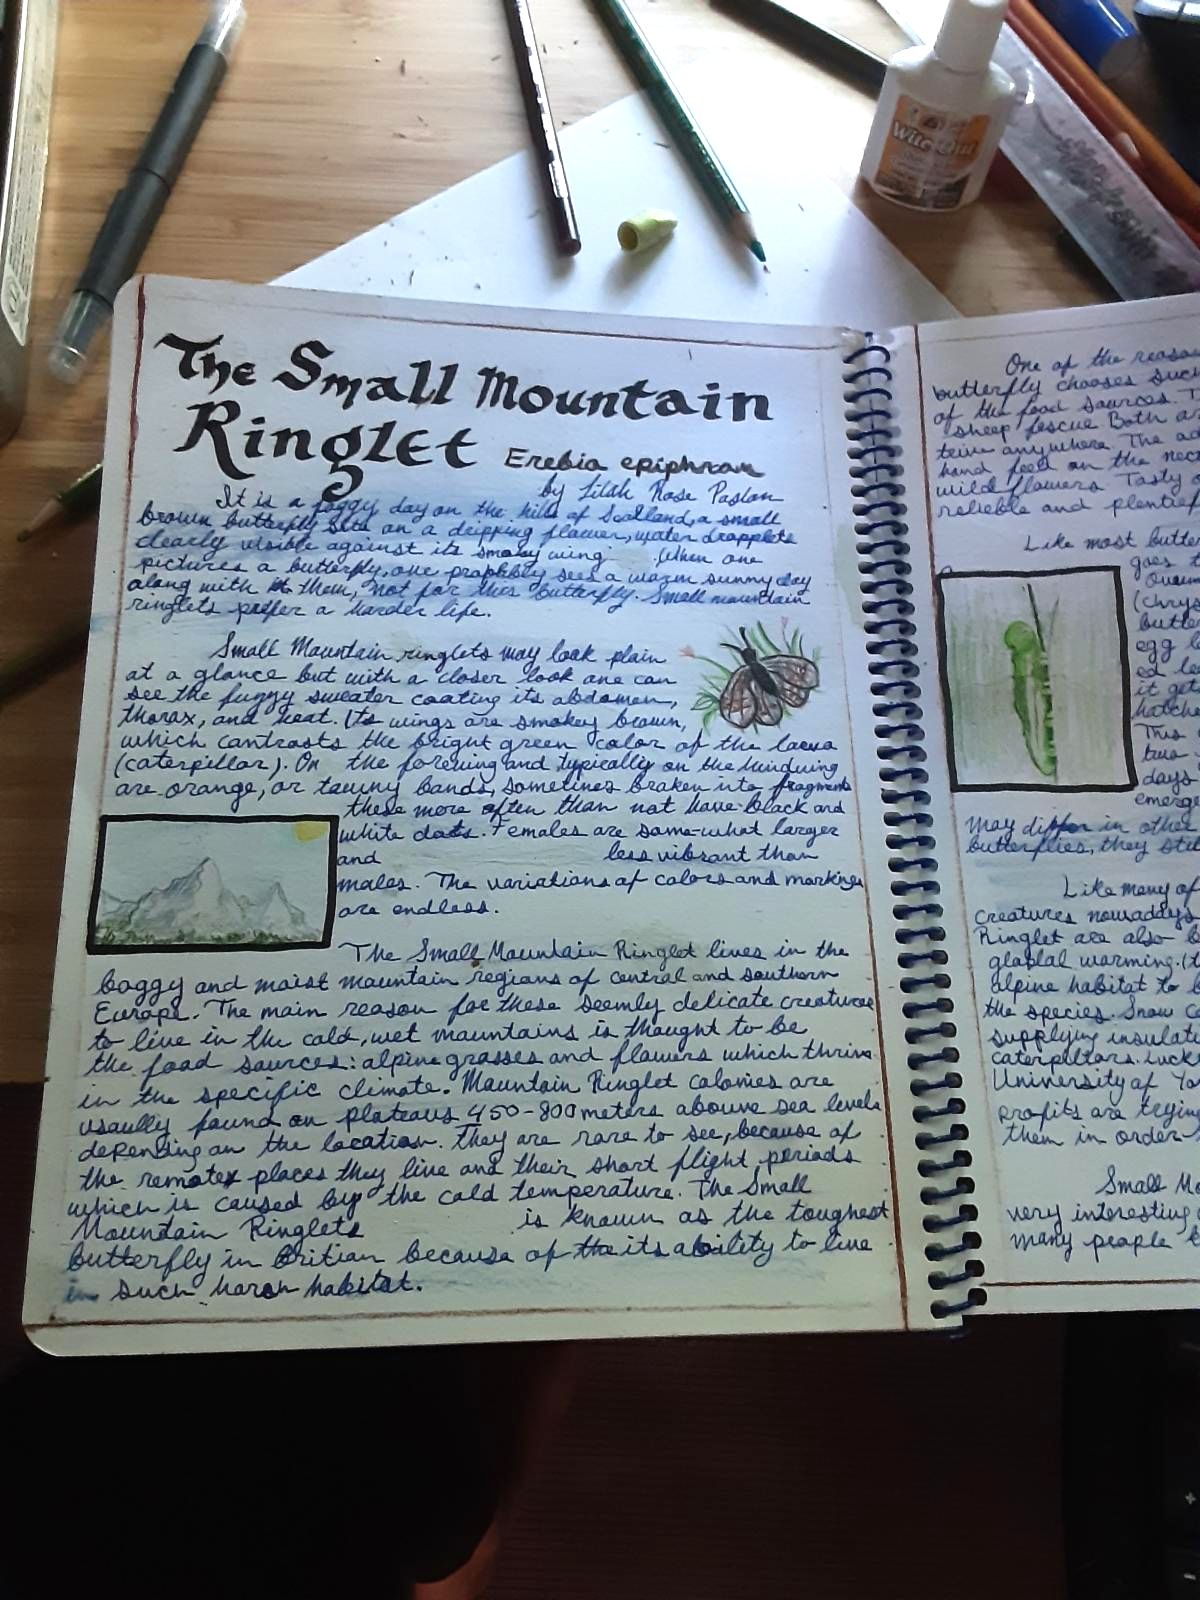 The Small Mountain
Ringlet Erebia epiphram
by Lilah Rose Paslon
It is a foggy day on the hills of Scotland, a small
brown butterfly sits on a dripping flower, water dropplets
clearly visible against its smokey wing. When one
pictures a butterfly, one probbly sees a warm sunny day
along with them, not for this butterfly. Small mountain
ringlets prefer a harder life.
Small Mountain ringlets may look plain
at a glance but with a closer look one can
see the fuzzy sweater coating its abdomen,
thorax, and heat. Its wings are smokey brown,
which contrasts the bright green color of the larva
(caterpillar). On the forewing and typically on the hindwing
are orange, or tawny bands, sometimes broken into fragments
these more often than not have black and
white dots. Females are some-what larger
and less vibrant than
males. The variations of colors and markings
are endless.
The Small Mountain Ringlet lives in the
boggy and moist mountain regions of central and southern
Europe. The main reason for these seemly delicate creatures
to live in the cold, wet mountains is thought to be
the food sources: alpine grasses and flowers which thrive
in the specific climate. Mountain Ringlet colonies are
usaully found on plateaus 450-800 meters abouve sea levels
depending on the location. They are rare to see, because of
the remote places they live and their short flight periods
which is caused by the cold temperature. The Small
Mountain Ringlets is known as the toughest
butterfly in Britian because of the its ability to live
in such harsh habitat.
One of the reaso
butterfly chooses suc
of the food sources. T
sheep fescue Both a
anywhere The ad
hand feed on the nect
wild flowers. Tasty
reliable and plentif
Like most butter
goes t
(chrys
butter
egg l
ed le
it get
hatche
This
two
days
emerg
may differ in other
butterflies, they stil
Like many of
creatures nowadays
Ringlet are also b
glabal warming. (t
alpine habitat to b
the species. Snow co
supplying insulati
caterpillars. Luck
University of Yo
profits are tryin
them in order
Small Mo
very interesting
many people
Wite Out